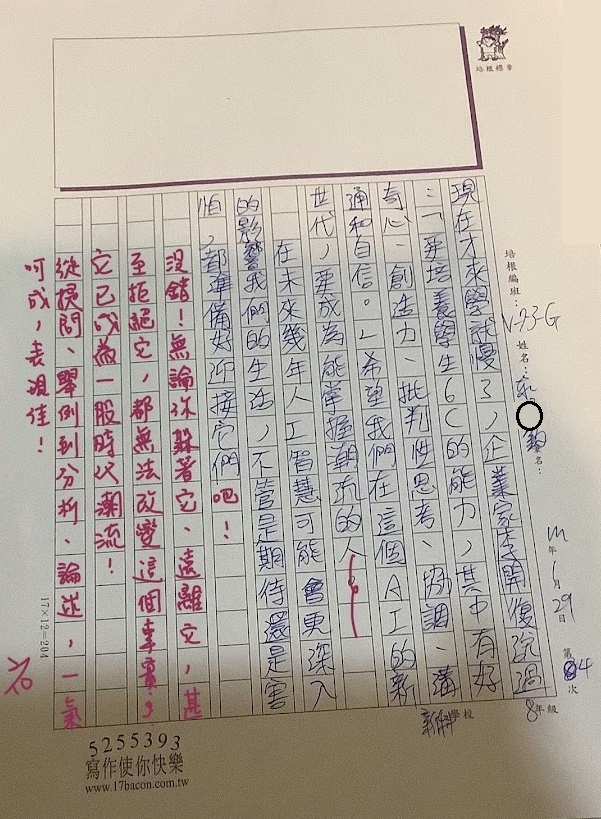 培根標章
培根編班：V-73-G
姓名：
簽名：
年1月29日
第04次
8年級
學校
現在才來學就慢了，企業家李開復說過
：「要培養學生6C的能力，其中有好
奇心、創造力、批判性思考、協調、溝
通和自信。」希望我們在這個AI的新
世代，要成為能掌握潮流的人。
在未來幾年人工智慧可能會更深入
的影響我們的生活，不管是期待還是害
怕，都準備好迎接它們吧！
沒錯！無論你躲著它、遠離它，甚
至拒絕它，都無法改變這個事實，
它已成為一股時代潮流！
從提問、舉例到分析、論述，一氣
呵成，表現佳！
17×12=204
5255393
寫作使你快樂
www.17bacon.com.tw